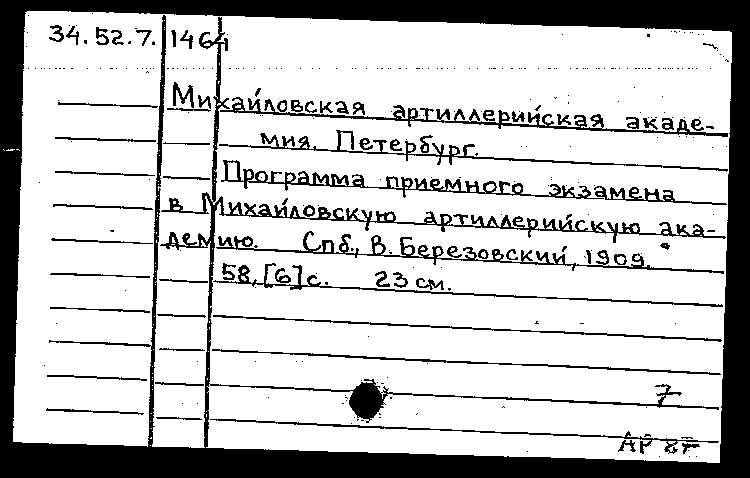 34.52.7. 1464
Михайловская артиллерийская акаде-
мия. Петербург.
Программа приемного экзамена
в Михайловскую артиллерийскую ака-
демию. Спб., В. Березовский, 1909.
58, [6] с. 23 см.
7
АР 87